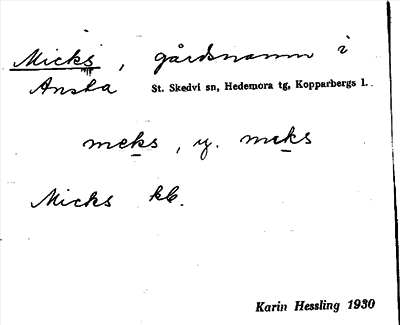 Micks, gårdsnamn i
Ansta St. Skedvi sn, Hedemora tg, Kopparbergs l.
meks, y. meks
Micks kb.
Karin Hessling 1930